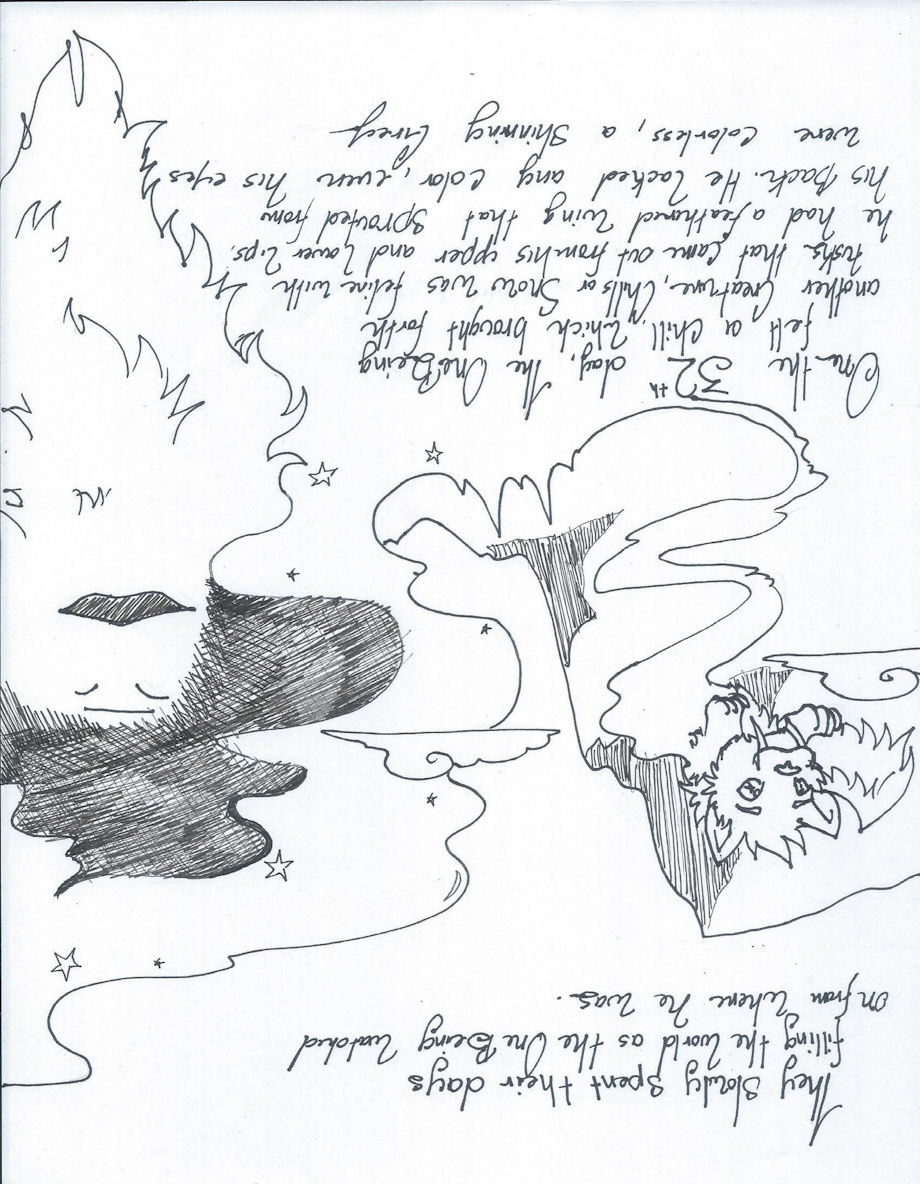 They slowly spent their days
filling the World as the One Being watched
on from Where he was.
One the 32th day, the One Being
felt a chill. Which brought forth
another Creature, Chills or Snow was feline with
tusks that came out from his upper and lower lips.
he had a feathered wing that sprouted from
his Back. He lacked any color, even his eyes
were colorless, a shinning Grey